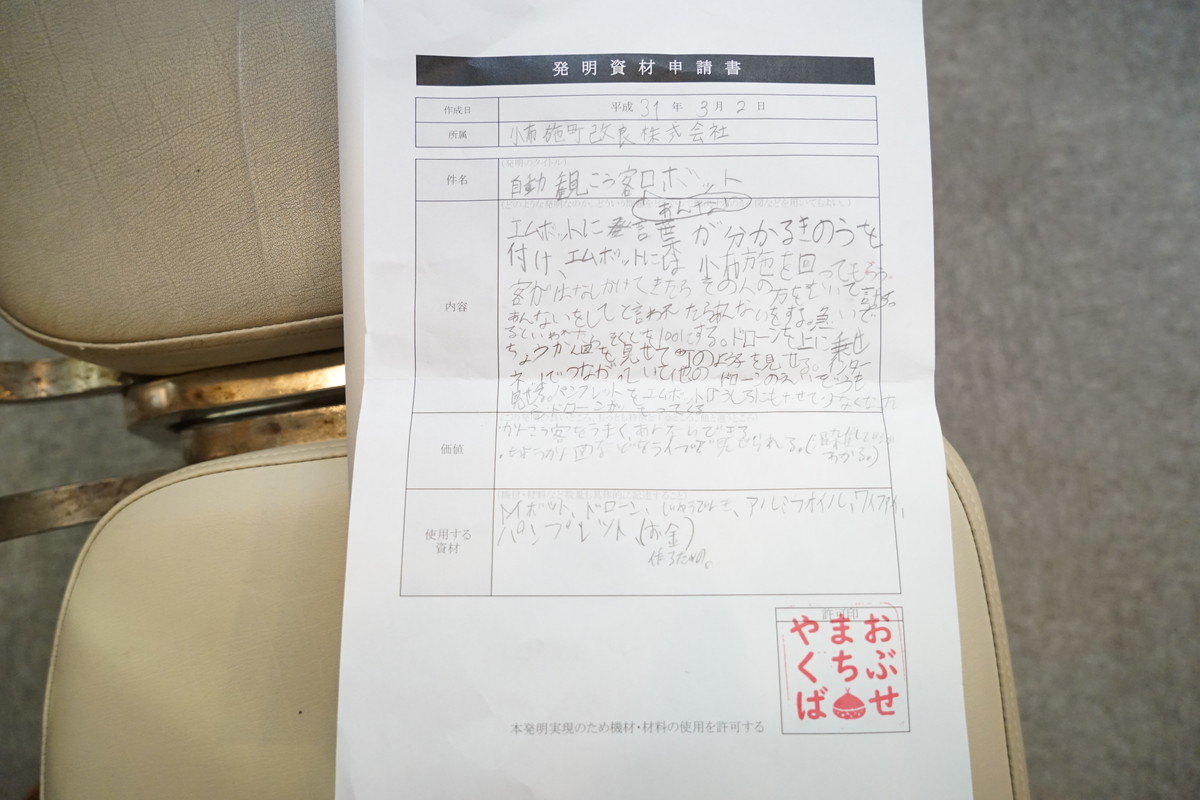 発明資材申請書
作成日 平成 31 年 3 月 2 日
所属 小布施町改良株式会社
(発明のタイトル)
件名 自動観こう客ロボット
あんない
内容
エムボットに言葉が分かるきのうを
付け、エムボットには小布施を回ってもらう
客がはなしかけてきたらその人の方をむいて
あんないをしてと言われたらあんないをする。急いで
るといわれたら を100にする。ドローンを上に乗せ
ちょうかん図を見せて町のようすを見せる。インター
ネットでつながっていて他のドローンのえいぞうも
見せる。パンフレットをエムボットのうしろにもたせて少なくなった
らドローンがもってくる
価値
かんこう客をうまくあんないできる。
・ちょうかん図などをライブで見せられる。(
わかる。)
使用する
資材
Mボット、ドローン、じゅうでんき、アルミフォイル、ワイファイ、
パンフレット、(お金)
作るための。
許可印
おぶせ
まち
やくば
本発明実現のため機材・材料の使用を許可する